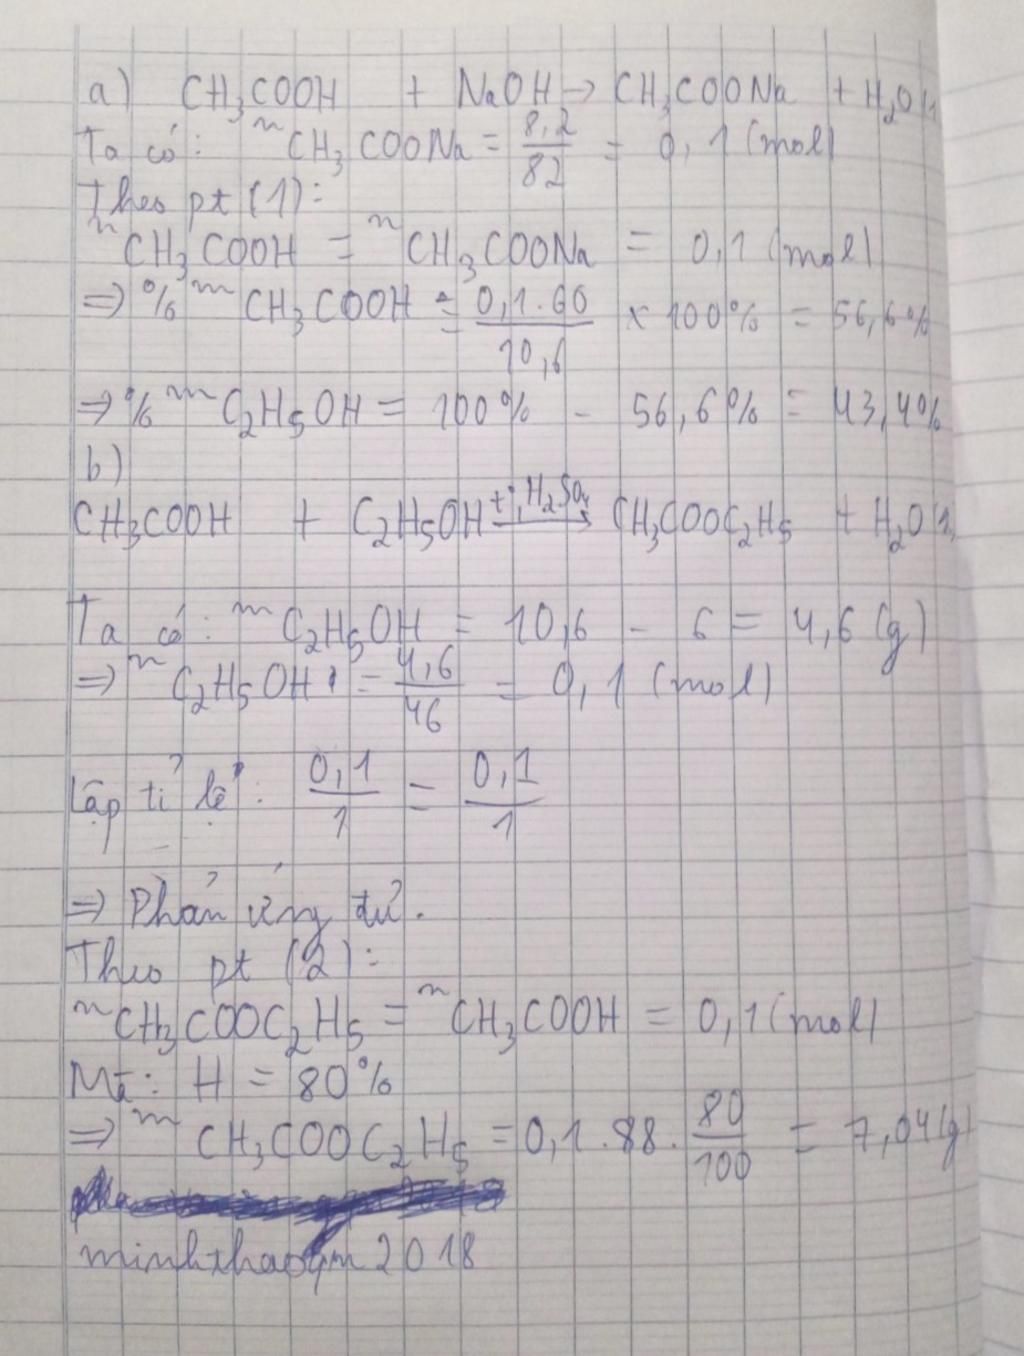 a) CH₃COOH + NaOH → CH₃COONa + H₂O (1
Ta có: nCH₃COONa = 8,2/82 = 0,1 (mol)
Theo pt (1):
nCH₃COOH = nCH₃COONa = 0,1 (mol)
=> %mCH₃COOH = 0,1.60/10,6 x 100% = 56,6%
=> %mC₂H₅OH = 100% - 56,6% = 43,4%
b)
CH₃COOH + C₂H₅OH t°,H₂SO₄→ CH₃COOC₂H₅ + H₂O
Ta có: mC₂H₅OH = 10,6 - 6 = 4,6 (g)
=> nC₂H₅OH = 4,6/46 = 0,1 (mol)
Lập tỉ lệ: 0,1/1 = 0,1/1
=> Phản ứng đủ.
Theo pt (2):
nCH₃COOC₂H₅ = nCH₃COOH = 0,1 (mol)
Mà: H = 80%
=> mCH₃COOC₂H₅ = 0,1.88.80/100 = 7,04(g)
2018